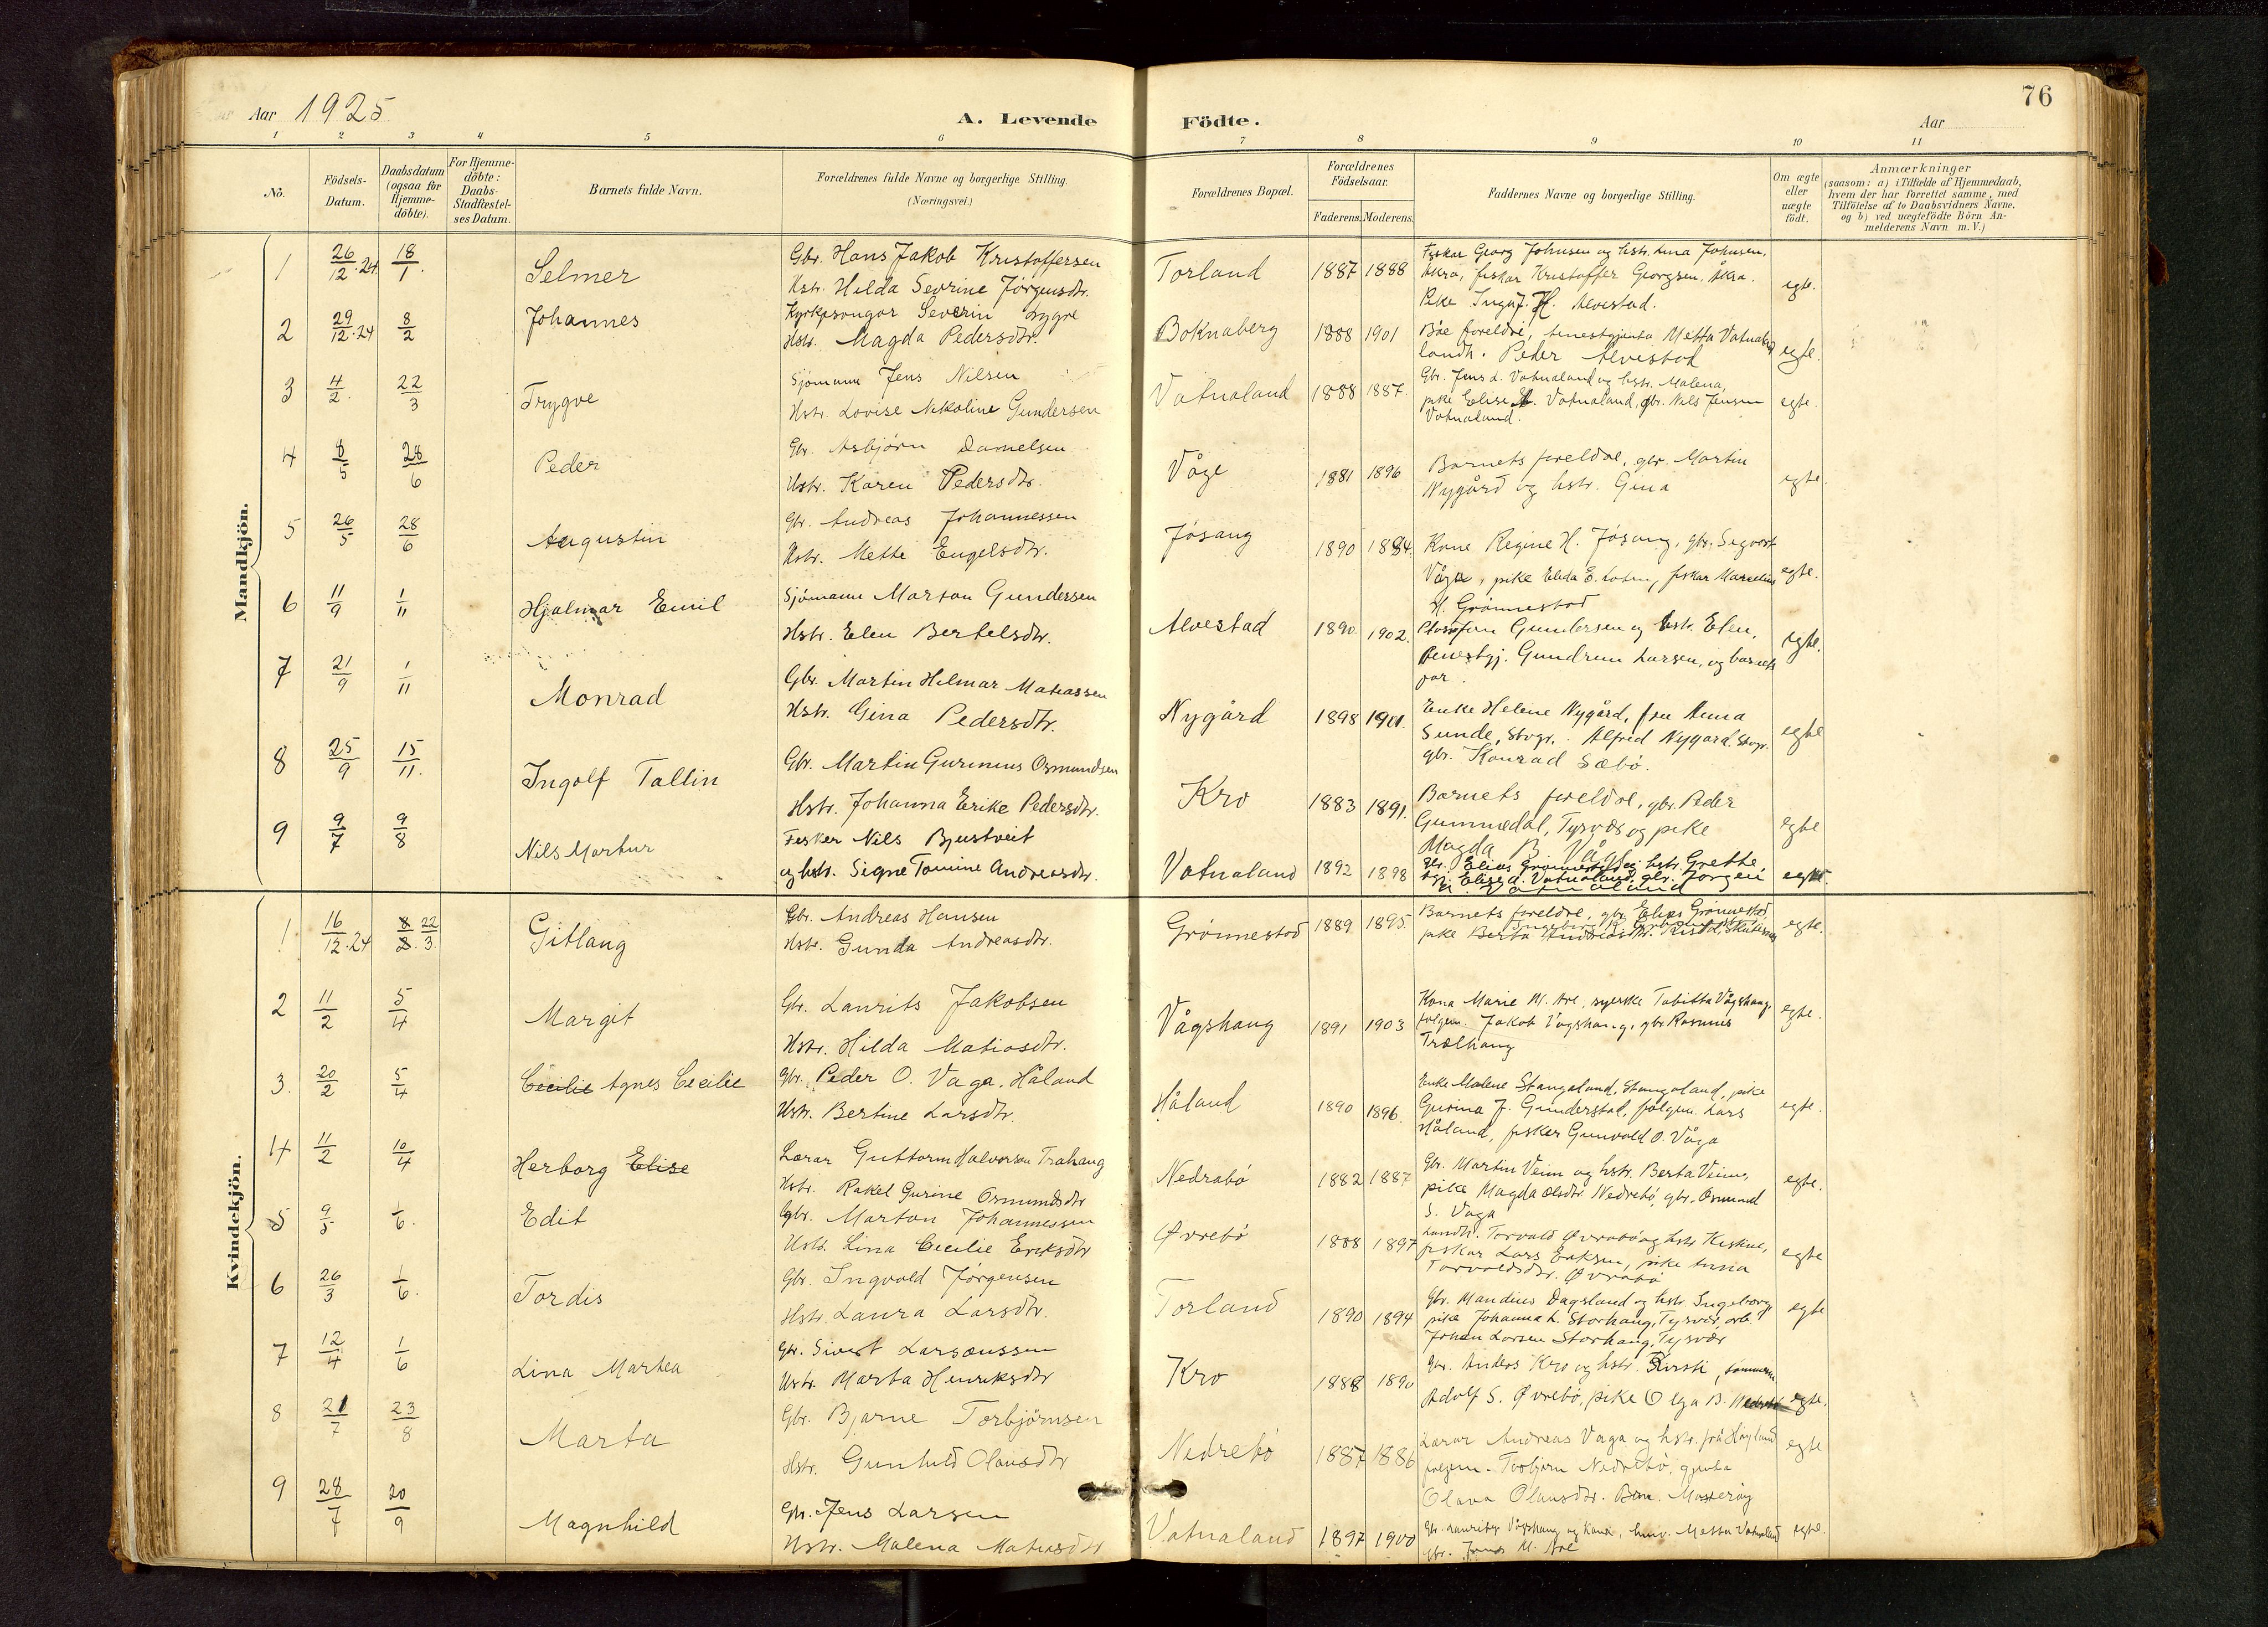 Aar 1925
A. Levende Födte.
Aar
76
1 2 3 4 5 6 7 8 9 10 11
No.
Födsels-Datum.
Daabsdatum (ogsaa for Hjemme-döbte).
For Hjemme-döbte: Daabs-Stadfæstel-ses Datum.
Barnets fulde Navn.
Forældrenes fulde Navne og borgerlige Stilling.
(Næringsvei.)
Forældrenes Bopæl.
Forældrenes Födselsaar.
Faderens. Moderens.
Faddernes Navne og borgerlige Stilling.
Om ægte eller uægte födt.
Anmærkninger
(saasom: a) i Tilfælde af Hjemmedaab,
hvem der har forrettet samme, med
Tilföielse af to Daabsvidners Navne.
og b) ved uægtefödte Börn An-
melderens Navn m. V.)
Mandkjön.
1 26/12.24 18/1. Selmer Gbr. Hans Jakob Kristoffersen
Hstr. Hilda Sevrine Jörgensdtr.
Torland 1887 1888 Fiskar Georg Johnsen og hstr. Lina Johnsen,
Åkra, fiskar Kristoffer Georgsen, Åkra.
Pike Inga J. H. Alvestad. egte.
2 29/12.24 8/2 Johannes Kyrkjesongar Severin Lygre
Hstr. Magda Pedersdtr.
Boknaberg 1888 1901 Båe foreldre, tenestgjenta Metta Vatnaland
landh. Peder Alvestad egte.
3 4/2. 22/3 Trygve Sjömann Jens Nilsen
Hstr. Lovise Nikoline Gundersen
Vatnaland 1888 1887. Gbr. Jens L. Vatnaland og hstr. Malena,
pike Elise Vatnaland, gbr. Nils Jensen
Vatnaland. egte.
4 8/5 28/6 Peder Gbr. Asbjörn Danielsen
Hstr. Karen Pedersdtr.
Våge 1881 1896 Barnets foreldre, gbr. Martin
Nygård og hstr. Gina egte.
5 26/5 28/6 Augustin Gbr. Andreas Johannessen
Hstr. Mette Engelsdtr.
Jösang 1890 1884. Kone Regine H. Jösang, gbr. Sigvart
Våge, pike Elida E. Loten, fiskar Marselius
H. Grönnestad egte.
6 11/9 1/11 Hjalmar Emil Sjömann Morton Gundersen
Hstr. Elen Bertelsdtr.
Alvestad 1890. 1902. Gundersen og hstr. Elen,
tenestgj. Gundrun Larsen, og barnets
far. egte.
7 21/9 1/11 Monrad Gbr. Martin Hilmar Matiassen
Hstr. Gina Pedersdtr.
Nygård 1898 1901. Enke Helene Nygård, fru Anna
Sunde, Stvgr. Alfred Nygård Stvgr.
gbr. Konrad Sæbö. egte
8 25/9 15/11. Ingolf Tallin Gbr. Martin Gurinius Osmundsen
Hstr. Johanna Erike Pedersdtr.
Kro 1883 1891. Barnets foreldre, gbr. Peder
Gummedal, Tysvær og pike
Magda B. Våge egte
9 9/7 9/8 Nils Martur Fisker Nils Bjustveit
og hstr. Signe Tomine Andreasdtr.
Vatnaland 1892 1898 gbr. Elias Grönnestad og hstr. Grethe,
Elise L. Vatnaland, gbr. Jörgen
Vatnaland egte.
Kvindekjön.
1 16/12.24 22/3. Gitlaug Gbr. Andreas Hansen
Hstr. Gunda Andreasdtr.
Grönnestad 1889 1895. Barnets foreldre, gbr. Elias Grönnestad,
pike Berta Andreasdtr. egte.
2 11/2 5/4 Margit Gbr. Laurits Jakobsen
Hstr. Hilda Matiasdtr.
Vågshaug 1891 1903 Kona Marie M. Are, syerske Tobitta Vågshaug,
fölgem. Jakob Vågshaug, gbr. Rasmus
Trælhaug egte.
3. 20/2 5/4 Cecilie Agnes Cecilie Gbr. Peder O. Vaga. Håland
Hstr. Bertine Larsdtr.
Håland 1890 1896. Enke Malene Stangeland, Stangaland, pike
Gurina J. Gunderstad, fölgem. Lars
Håland, fisker Gunvald O. Våga egte.
4 11/2 10/4 Herborg Elise Lærar Guttorm Halvorsen Trahaug
Hstr. Rakel Gurine Osmundsdtr
Nedrabö 1882 1887 Gbr. Martin Veim og hstr. Berta Veim,
pike Magda Olsdtr. Nedrebö, gbr. Osmund
S. Vaga egte.
5 9/5 1/6. Edit Gbr. Marton Johannessen
Hstr. Lina Cecilie Eriksdtr
Øvrebö 1888 1897 Landh. Torvald Øvrabö og hstr.
fiskar Lars Eriksen, pike Anna
Torvaldsdtr. Øvrabö egte
6 26/3 1/6. Tordis Gbr. Ingvald Jörgensen
Hstr. Laura Larsdtr.
Torland 1890 1894 Gbr. Mandius Dagsland og hstr. Ingeborg,
pike Johanna L. Storhaug, Tysvær, arb.
Johan Larsen Storhaug, Tysvær egte
7 12/4 1/6 Lina Martea Gbr. Sivert Larsaussen
Hstr. Marta Henriksdtr
Kro 1888 1890 Gbr. Anders Kro og hstr. Kirsti,
Adolf S. Øvrebö, pike Olga B. egte.
8 21/7 23/8 Marta Gbr. Bjarne Torbjörnsen
Hstr. Gunhild Olausdtr
Nedrebö 1887 1886 Lærar Andreas Vaga og hstr. frå Höyland
fölgem. Torbjörn Nedrebö, gjenta
Olava Olausdtr. egte
9 28/7 20/9 Magnhild Gbr. Jens Larsen
Hstr. Malena Matiasdtr
Vatnaland 1897 1900 Gbr. Lauritz Vågshaug og Kona, Metta Vatnaland
gbr. Jonas M. Are egte.